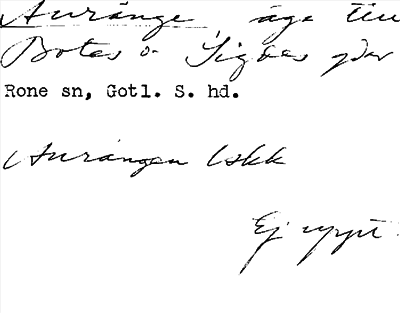 Auränge äga till
Botes o Sigbes gdar
Rone sn, Gotl. S. hd.
Aurängen Lskk
Ej uppt.